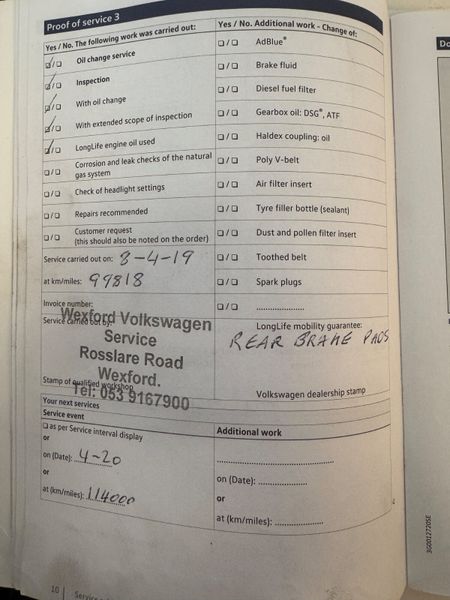 Proof of service 3
Yes / No. The following work was carried out:
Oil change service
Inspection
With oil change
With extended scope of inspection
LongLife engine oil used
Corrosion and leak checks of the natural
gas system
Check of headlight settings
Repairs recommended
Customer request
(this should also be noted on the order)
Service carried out on: 8-4-19
at km/miles: 99818
Invoice number:
Service carried out by:
Wexford Volkswagen
Service
Rosslare Road
Wexford.
Tel: 053 9167900
Stamp of qualified workshop
Yes / No. Additional work – Change of:
AdBlue®
Brake fluid
Diesel fuel filter
Gearbox oil: DSG®, ATF
Haldex coupling: oil
Poly V-belt
Air filter insert
Tyre filler bottle (sealant)
Dust and pollen filter insert
Toothed belt
Spark plugs
....................
LongLife mobility guarantee:
REAR BRAKE PADS
Volkswagen dealership stamp
Your next services
Service event
as per Service interval display
or
on (Date): 4-20
or
at (km/miles): 114000
Additional work
on (Date): ....................
or
at (km/miles): ....................
10 Service
3G0012720SE